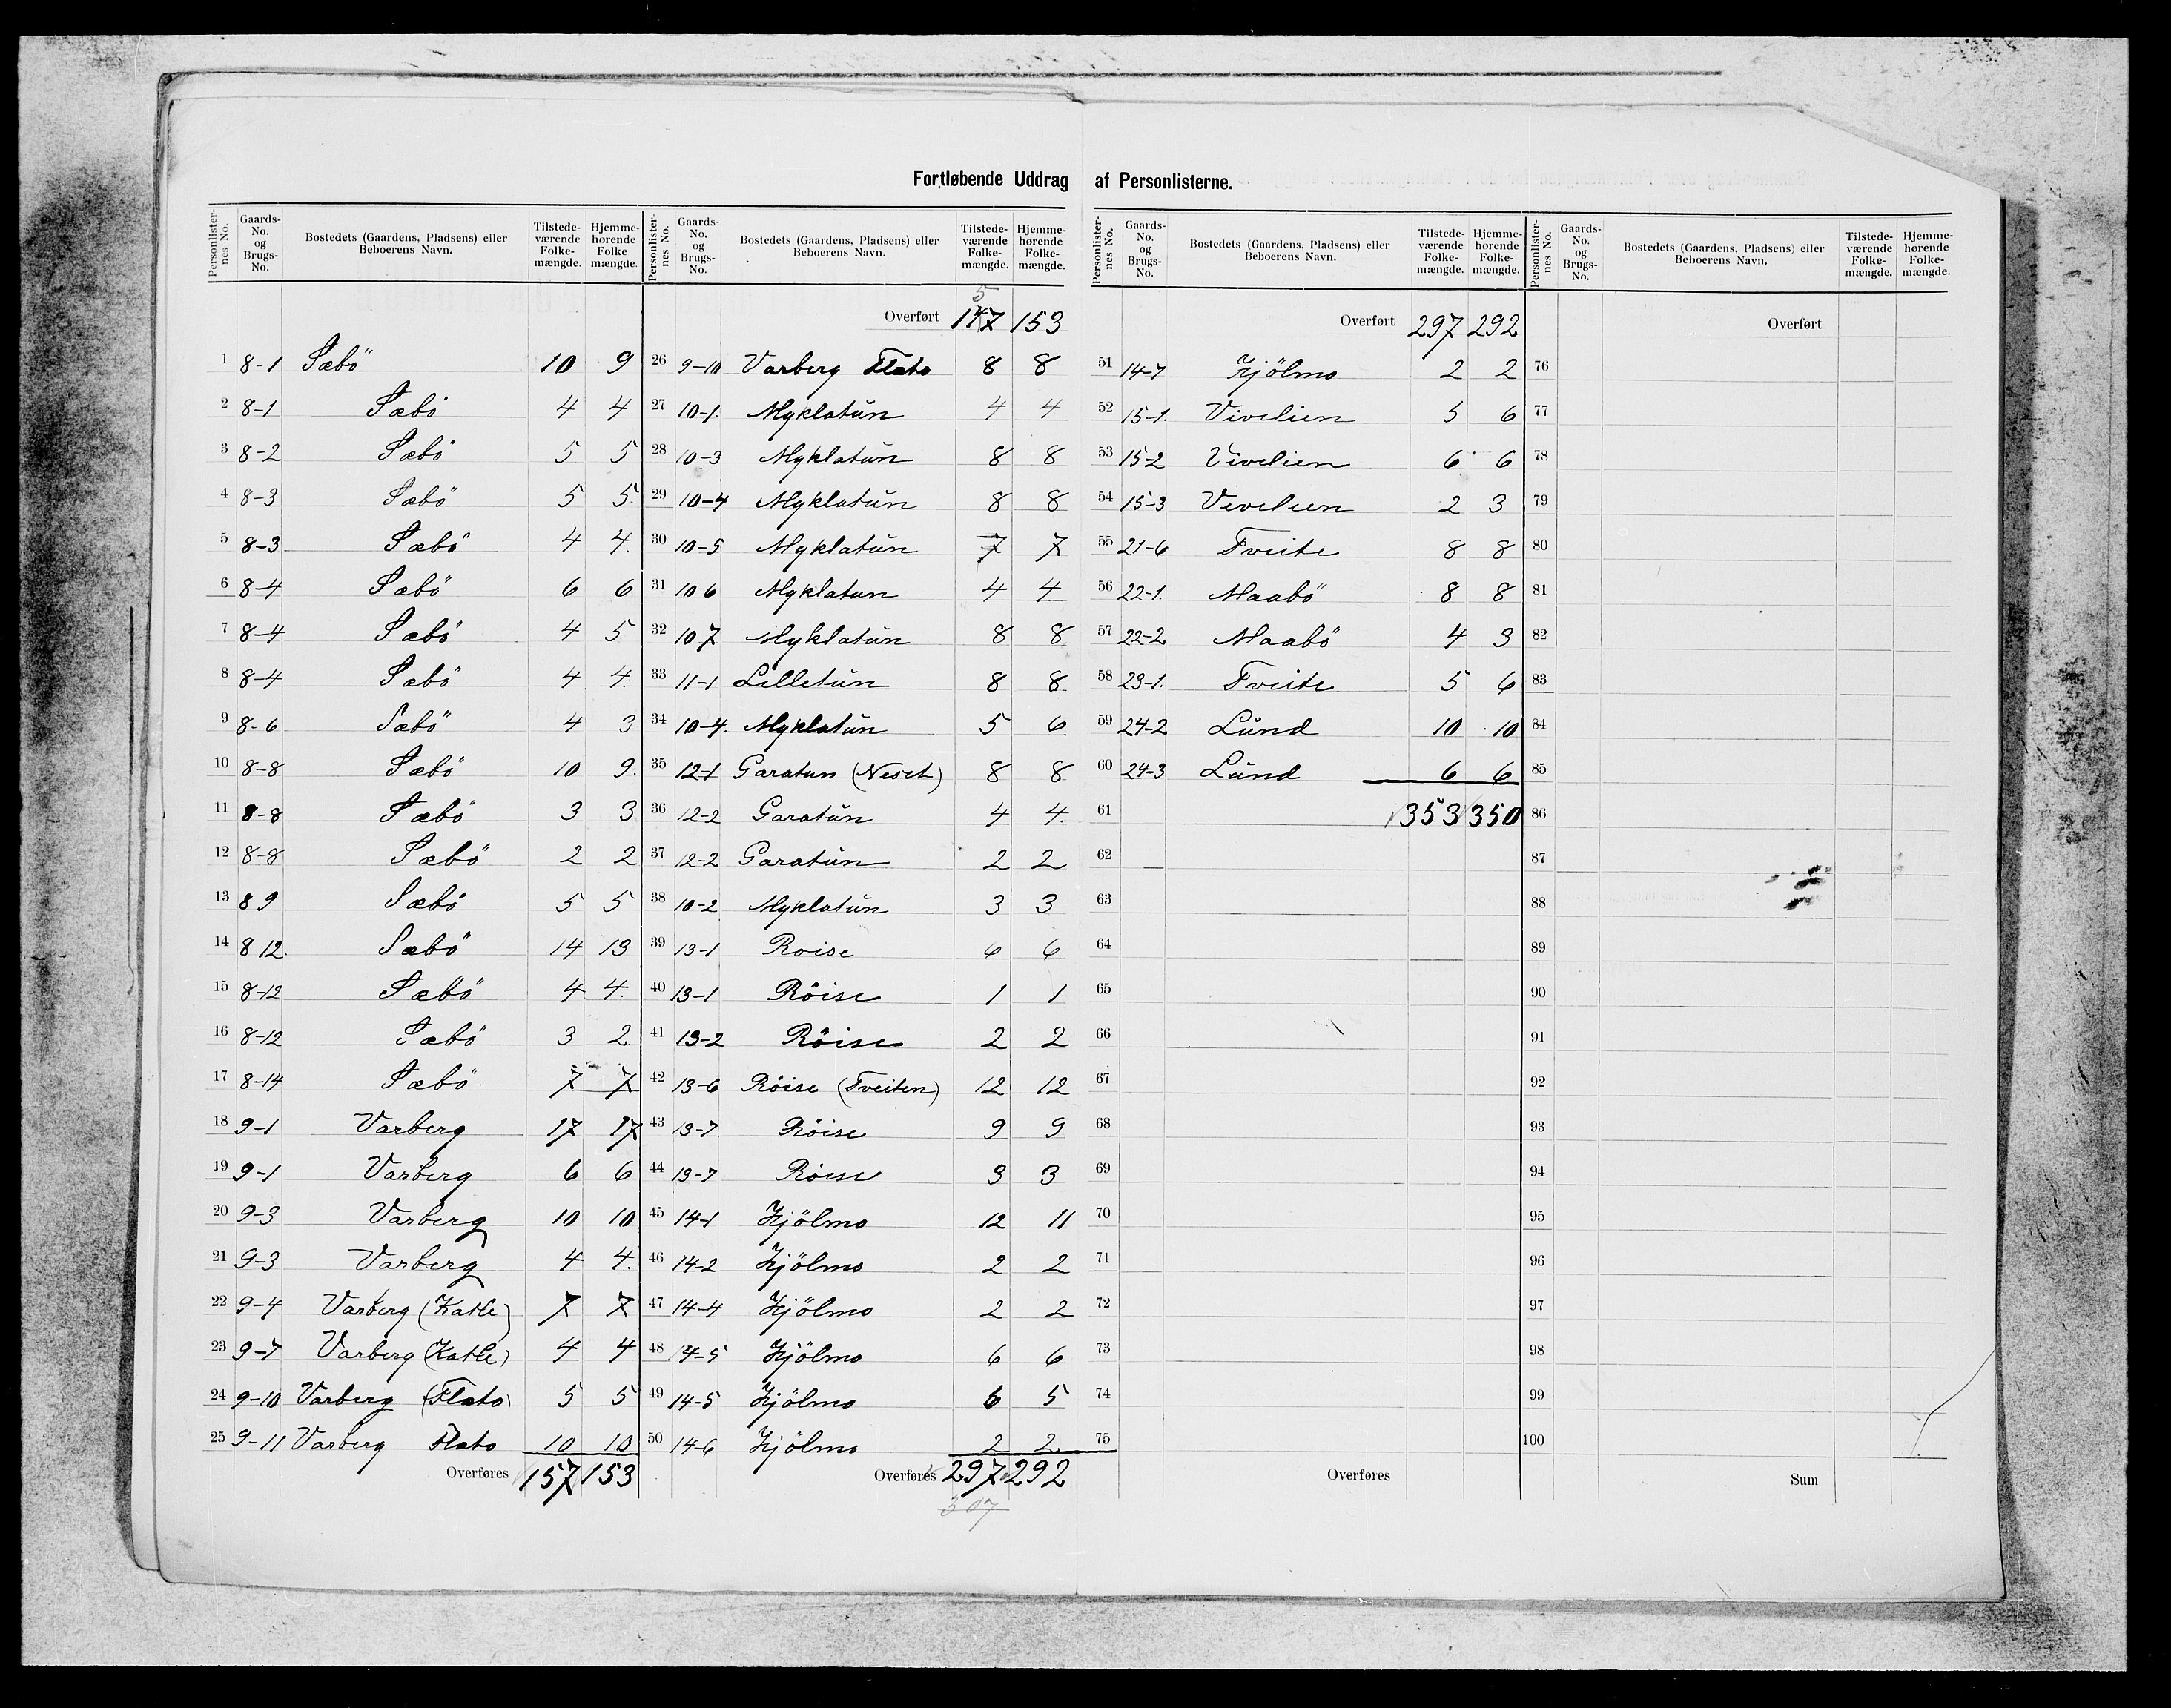 Fortløbende Uddrag af Personlisterne.
Personlister-nes No. Gaards-No. og Brugs-No. Bostedets (Gaardens, Pladsens) eller Beboerens Navn. Tilstede-værende Folke-mængde. Hjemme-hørende Folke mængde.
1 8-1 Sæbö 10 9
2 8-1 Sæbö 4 4
3 8-2 Sæbö 5 5
4 8-3 Sæbö 5 5
5 8-3 Sæbö 4 4
6 8-4 Sæbö 6 6
7 8-4 Sæbö 4 5
8 8-4 Sæbö 4 4
9 8-6 Sæbö 4 3
10 8-8 Sæbö 10 9
11 8-8 Sæbö 3 3
12 8-8 Sæbö 2 2
13 8 9 Sæbö 5 5
14 8 12 Sæbö 14 13
15 8-12 Sæbö 4 4
16 8-12 Sæbö 3 2
17 8-14 Sæbö 7 7
18 9-1 Varberg 17 17
19 9-1 Varberg 6 6
20 9-3 Varberg 10 10
21 9-3 Varberg 4 4
22 9-4 Varberg (Katle) 7 7
23 9-7 Varberg (Katle) 4 4
24 9-10 Varberg (Flato) 5 5
25 9-11 Varberg Flato 10 10
Overføres 157 153
Personlister-nes No. Gaards-No. og Brugs-No. Bostedets (Gaardens, Pladsens) eller Beboerens Navn. Tilstede-værende Folke-mængde. Hjemme-hørende Folke-mængde.
5
Overført 147 153
26 9-10 Varberg Flato 8 8
27 10-1. Myklatŭn 4 4
28 10-3 Myklatŭn 8 8
29 10-4 Myklatŭn 8 8
30 10-5 Myklatŭn 7 7
31 10 6 Myklatun 4 4
32 10 7 Myklatŭn 8 8
33 11-1 Lilletŭn 8 8
34 10-4. Myklatŭn 5 6
35 12-1 Garatun (Neset) 8 8
36 12-2 Garatŭn 4 4
37 12-2 Garatŭn 2 2
38 10-2 Myklatŭn 3 3
39 13-1 Roise 6 6
40 13-1 Röise 1 1
41 13-2 Röise 2 2
42 13-6 Röise (Tveiten) 12 12
43 13-7 Röise 9 9
44 13-7 Röise 3 3
45 14-1 Hjölmo 12 11
46 14-2 Hjölmo 2 2
47 14-4 Hjölmo 2 2
48 14-5 Hjölmo 6 6
49 14-5 Hjölmo 6 5
50 14-6 Hjölmo 2 2
Overføres 297 292
307
Personlister-nes No. Gaards-No. og Brugs-No. Bostedets (Gaardens, Pladsens) eller Beboerens Navn. Tilstede-værende Folke-mængde. Hjemme-hørende Folke-mængde.
Overført 297 292
51 14-7 Hjölmo 2 2
52 15-1. Vivelien 5 6
53 15-2 Vivelien 6 6
54 15-3 Vivelien 2 3
55 21-6 Tveite 8 8
56 22-1. Maabö 8 8
57 22-2 Maabö 4 3
58 23-1. Tveite 5 6
59 24-2 Lŭnd 10 10
60 24-3 Lŭnd 6 6
61 353 350
62
63
64
65
66
67
68
69
70
71
72
73
74
75
Overføres
Personlister-nes No. Gaards-No. og Brugs-No. Bostedets (Gaardens, Pladsens) eller Beboerens Navn. Tilstede-værende Folke-mængde. Hjemme-hørende Folke-mængde.
Overført
76
77
78
79
80
81
82
83
84
85
86
87
88
89
90
91
92
93
94
95
96
97
98
99
100
Sum